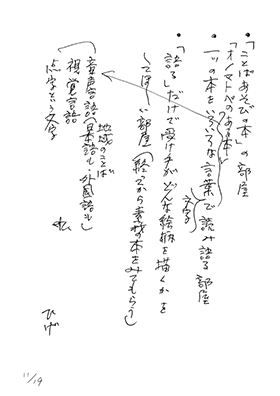 ・「ことばあそびの本」の部屋
「オノマトペのある本」
・一つの本をいろいろな言葉で読み語る部屋
文字
・「語る」だけで受け手がどんな絵柄を描くかを
してほしい部屋(終ってから素材の本をみてもらう)
地域のことば
音声言語(日本語も・外国語も)
視覚言語
点字という文字
ひげ
11/19